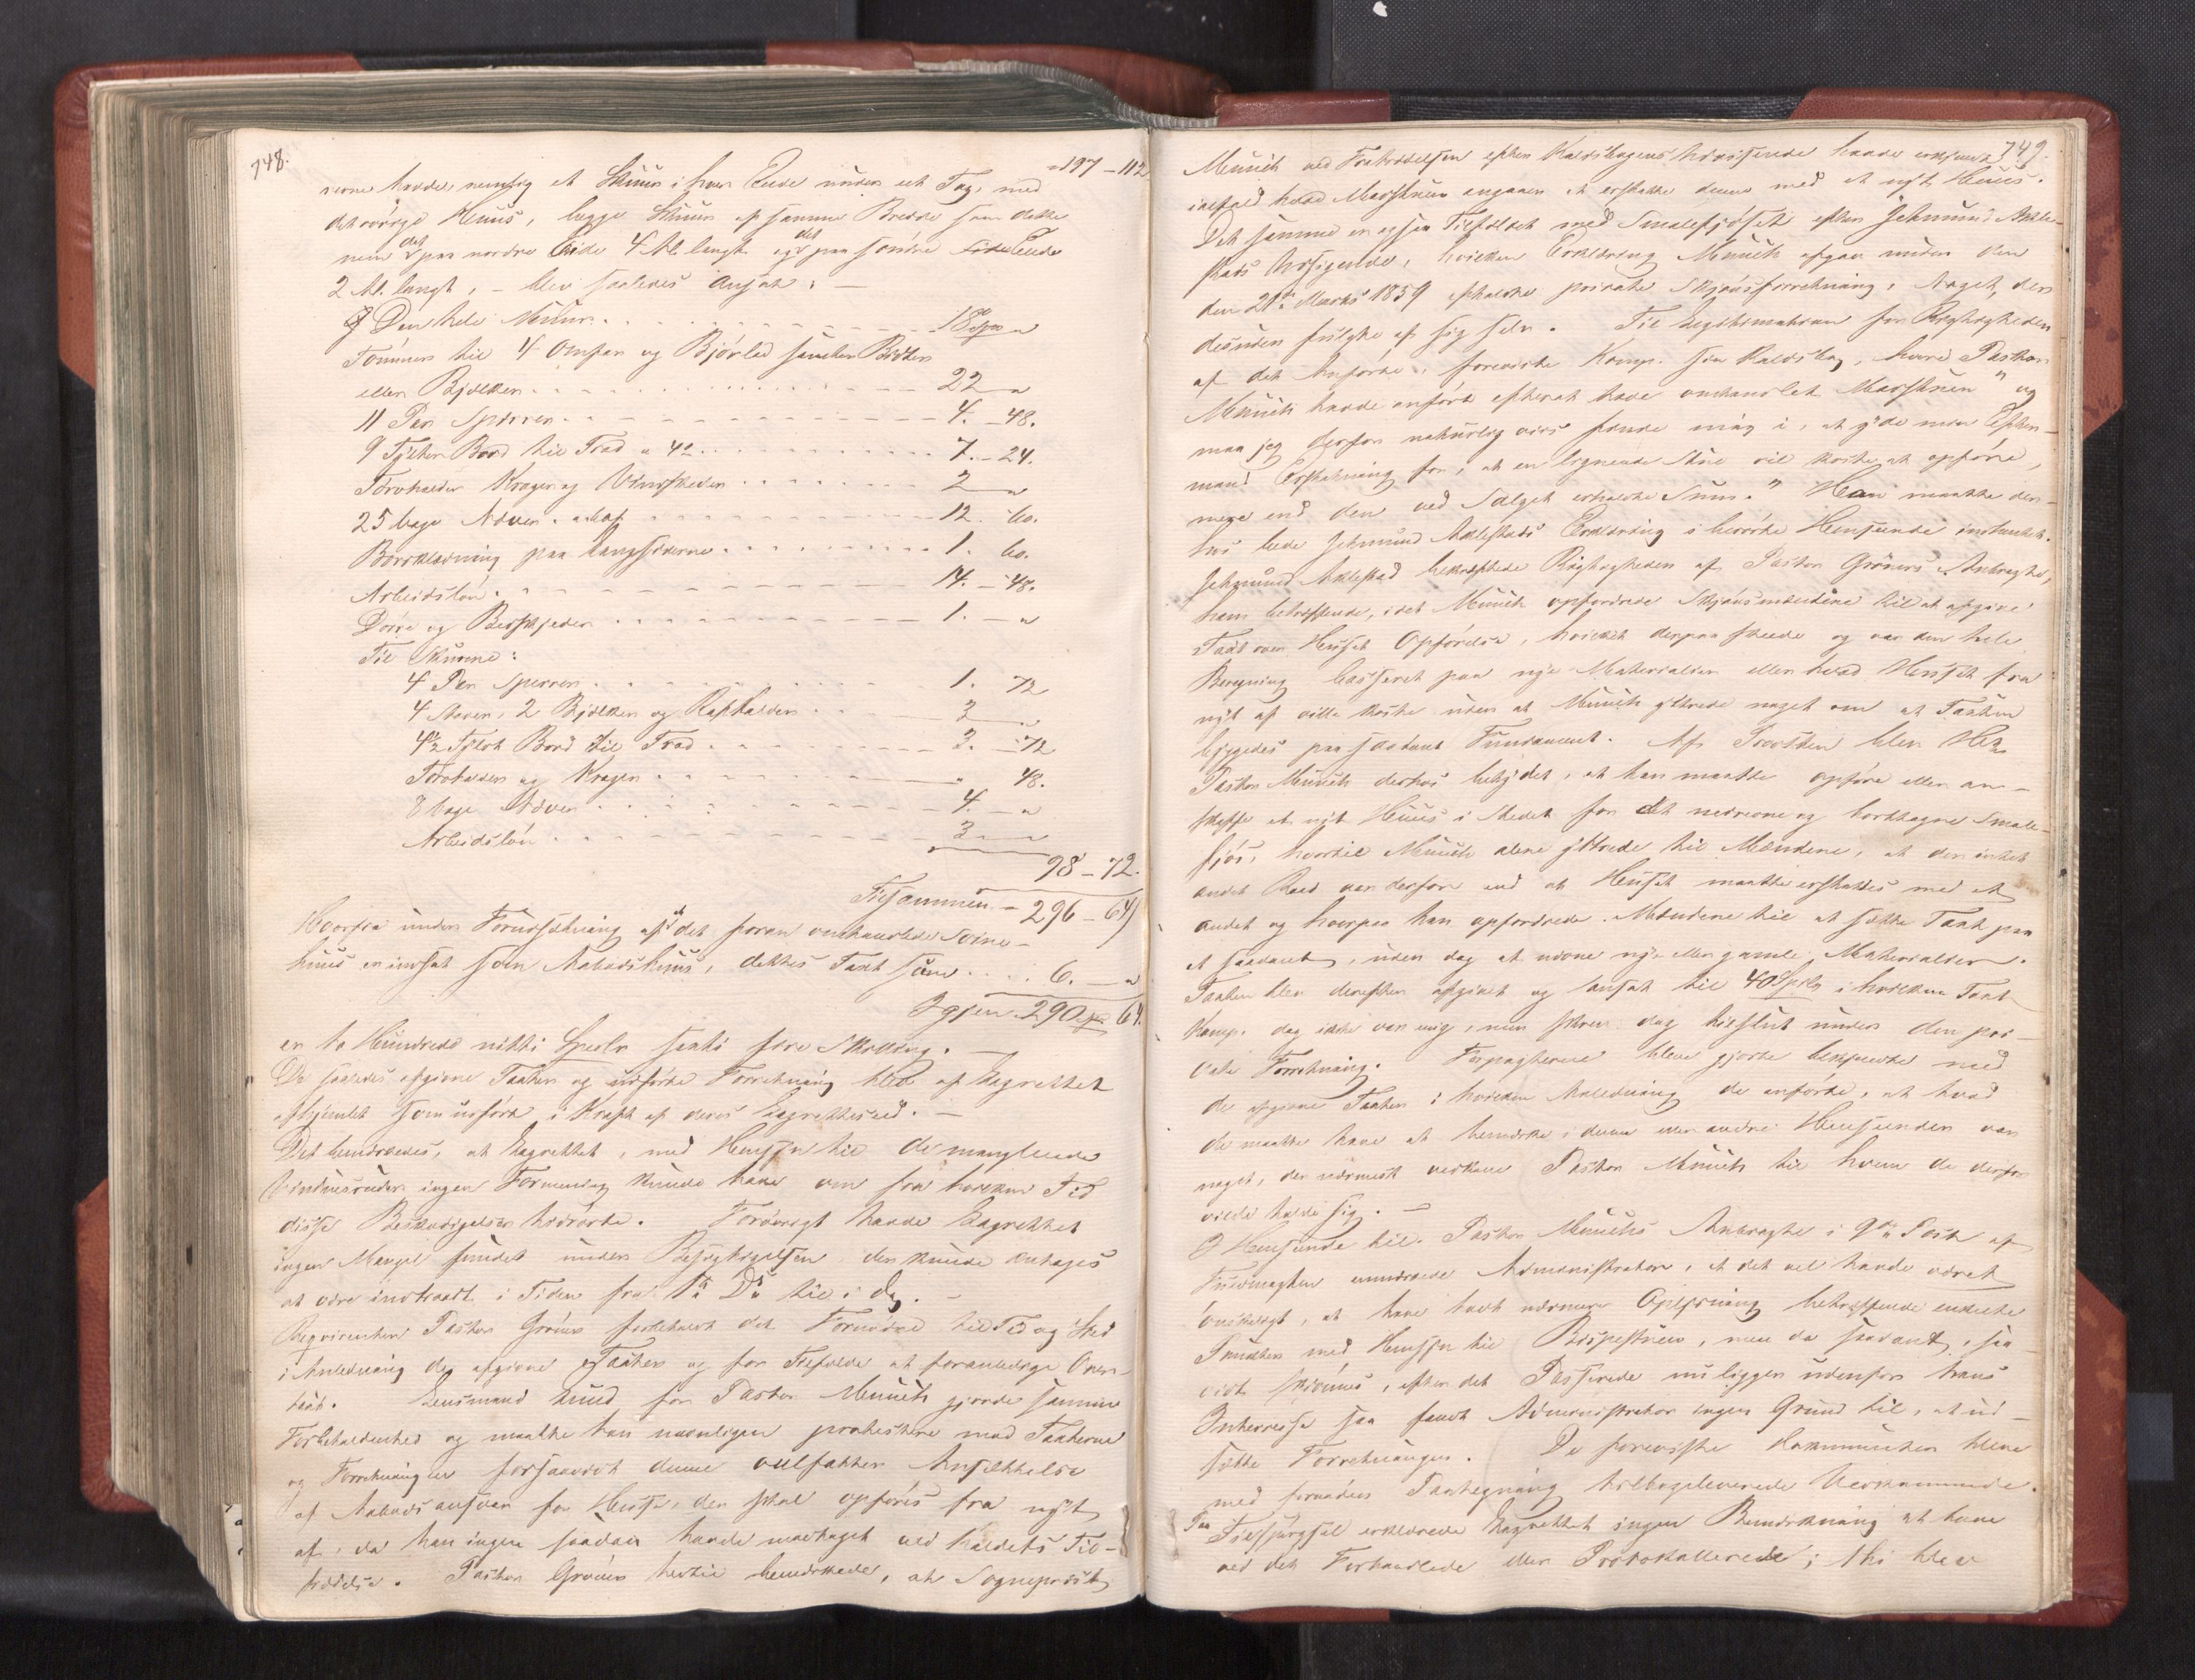 748.
197 – 112
verne havde, nemlig et Skuur i hver Ende under eet Tag med
det øvrige Huus, begge Skuur af samme Bredde som dette
nem det paa nordre Ende 4 Al. langt og det paa søndre Side Ende
2 Al. langt, – blev saaledes ansat: –
Den hele Muur 18 Spd "
Tømmer til 4 Omfar og Bjørlad samt Bitter
eller Bjelker 22 "
11 Par Sperrer 4. – 48.
9 Tylter Bord til Trod a 4 7. – 24.
Torvhalder Krager og Vindskeder 2 "
25 Vage Næver 12. 60.
Bordklædning paa Langsiderne 1. 60.
Arbeidsløn 14. – 48.
Dørre og Beslag 1. – "
Til Skurene:
4 Par Sperrer 1. 72
4 Staver, 2 Bjelker og Rafthalder 3 "
4½ Tylt Bord til Trod 3. – 72
Torvhalder og Krager " 48.
8 Vage Næver 4. – "
Arbeidsløn 3 "
98 – 72.
Tilsammen – 296 – 64
Hvorfra under Forudsætning af at det foran omhandlede Svine-
huus er indsat som Aabodshuus, dettes Taxt som 6. – "
Igjen 290 Spd 64.
er to Hundrede nitti Specdlr sexti fire Skilling. –
De saaledes afgivne Taxter og udførte Forretning blev af Lagrettet
afhjemlet som udført i Kraft af deres Lagrettesed. –
Det bemærkedes, at Lagrettet, med Hensyn til de manglende
Vinduesruder ingen Formening kunde have om fra hvilken Tid
disse Beskadigelser hidrørte. Forøvrigt havde Lagrettet
ingen Mangel fundet under Besigtigelsen der kunde antages
at være indtraadt i Tiden fra 1ste Ds til i Dag. –
Reqvirenten Pastor Grøner forbeholdt det Fornødne til Tid og Sted
i Anledning de afgivne Taxter og for Tilfælde at foranledige Over-
taxt. Lensmand Lund for Pastor Münch gjorde samme
Forbeholdenhed og maatte han navnligen protestere mod Taxterne
og Forretningen forsaavidt denne omfatter Ansættelse
af Aabodsansvar for Huse, der skal opføres fra nyt
af, da han ingen saadan havde modtaget ved Kaldets Til-
trædelse. Pastor Grøner hertil bemærkede, at Sogneprest
749.
Münch ved Fratrædelsen efter Kaldsbogens Udvisende havde erkjendt
ialfald hvad Masstuen angaaer at erstatte denne med et nyt Huus.
Det samme er ogsaa Tilfældet med Smalefjøset efter Jetmund Akle-
stads Udsigende, hvilken Erklæring Münch afgav under den
den 21de Marts 1859 afholdte private Skjønsforretning, Noget, der
desuden fulgte af sig selv. Til Legitimation for Rigtigheden
af det Anførte, foreviste Komp. sin Kaldsbog, hvori Pastor
Münch havde anført efterat have omhandlet Masstuen " og
maa jeg derfor naturligviis finde mig i, at yde min Efter-
mand Erstatning for, at en lignende Stue vil koste at opføre,
mere end den ved Salget erholdte Sum." Han maatte der-
hos bede Jetmund Aklestads Erklæring i berørte Henseende indhentet.
Jetmund Aklestad bekræftede Rigtigheden af Pastor Grøners Anbragte,
ham betreffende, idet Münch opfordrede Skjønsmændene til at afgive
Taxt over Huset Opførelse, hvilket derpaa skeede og var den hele
Beregning basseret paa nye Materialier eller hvad Huset fra
nyt af ville koste uden at Münch yttrede noget om at Taxten
byggedes paa saadant Fundament. Af Provsten blev Hr.
Pastor Münch derhos betydet, at han maatte opføre eller an-
skaffe et nyt Huus i Stedet for det nedrevne og borttagne Smale-
fjøs, hvortil Münch alene yttrede til Mændene, at der intet
andet Raad var derfor end at Huset maatte erstattes med et
andet og hvorpaa han opfordrede Mændene til at sætte Taxt paa
et saadant, uden dog at nævne nye eller gamle Materialier.
Taxten blev derefter afgivet og ansat til 40 Spdlr i hvilken Taxt
Komp. dog ikke var enig, men skrev dog tilslut under den pri-
vate Forretning. Forpagterne bleve gjorte bekjendte med
de afgivne Taxter i hvilken Anledning de anførte, at hvad
de maatte have at bemærke i denne eller andre Henseender var
noget, der nærmest vedkom Pastor Münch til hvem de derfor
vilde holde sig. –
I Henseende til Pastor Münchs Anbragte i 9de Post af
Fuldmagten bemærkede Administrator, at det vel havde været
ønskeligt, at have havt nærmere Oplysning betreffende enkelte
Puncter med Hensyn til Bispestuen, men da saadant, saa-
vidt skjønnes, efter det Passerede nu ligger udenfor hans
Interresse saa fandt Administrator ingen Grund til, at ud-
sætte Forretningen. De foreviste Dokumenter bleve
med fornøden Paategning tilbageleverede Vedkommende.
Paa Tilspørgsel erklærede Lagrettet ingen Bemærkning at have
ved det Forhandlede eller Protokollerede; thi blev